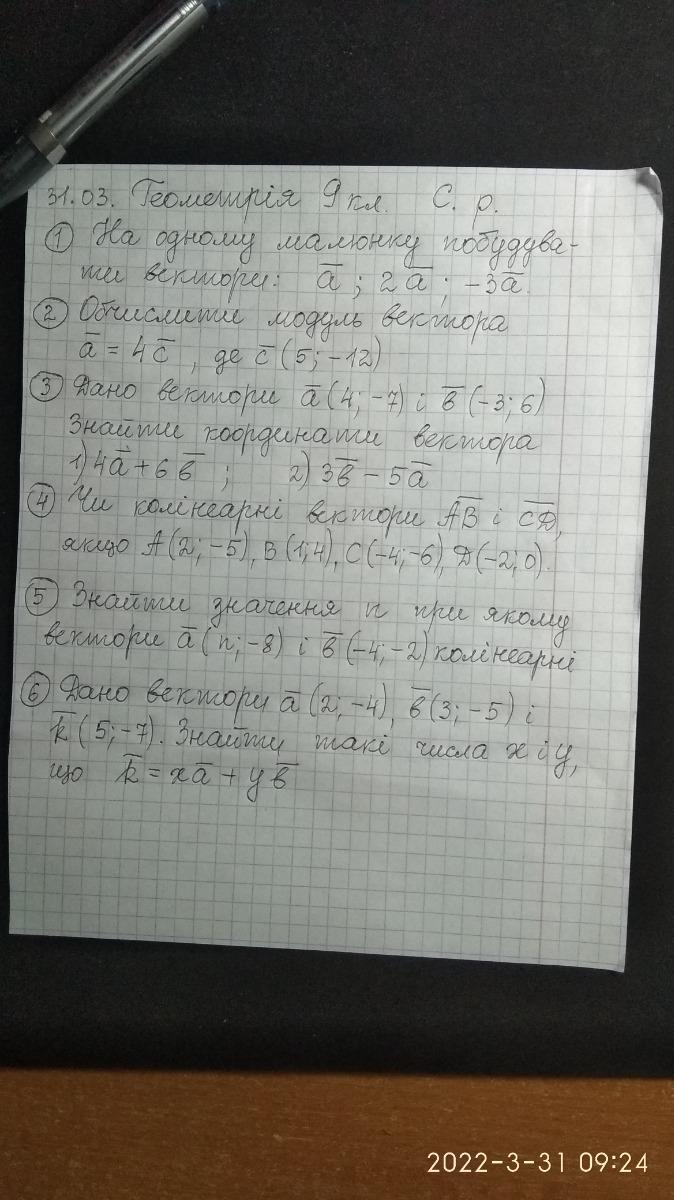 31.03. Геометрія 9 кл. С. р.
① На одному малюнку побудува-
ти вектори: a̅ ; 2a̅ ; -3a̅.
② Обчислити модуль вектора
a̅ = 4c̅ , де c̅ (5; -12)
③ Дано вектори a̅ (4; -7) і b̅ (-3; 6)
Знайти координати вектора
1) 4a̅ + 6b̅ ; 2) 3b̅ - 5a̅
④ Чи колінеарні вектори A̅B̅ і C̅D̅,
якщо A(2; -5), B(1; 4), C(-4; -6), D(-2; 0).
⑤ Знайти значення n при якому
вектори a̅ (n; -8) і b̅ (-4; -2) колінеарні
⑥ Дано вектори a̅ (2; -4), b̅ (3; -5) і
k̅ (5; -7). Знайти такі числа x і y,
що k̅ = xa̅ + yb̅
2022-3-31 09:24